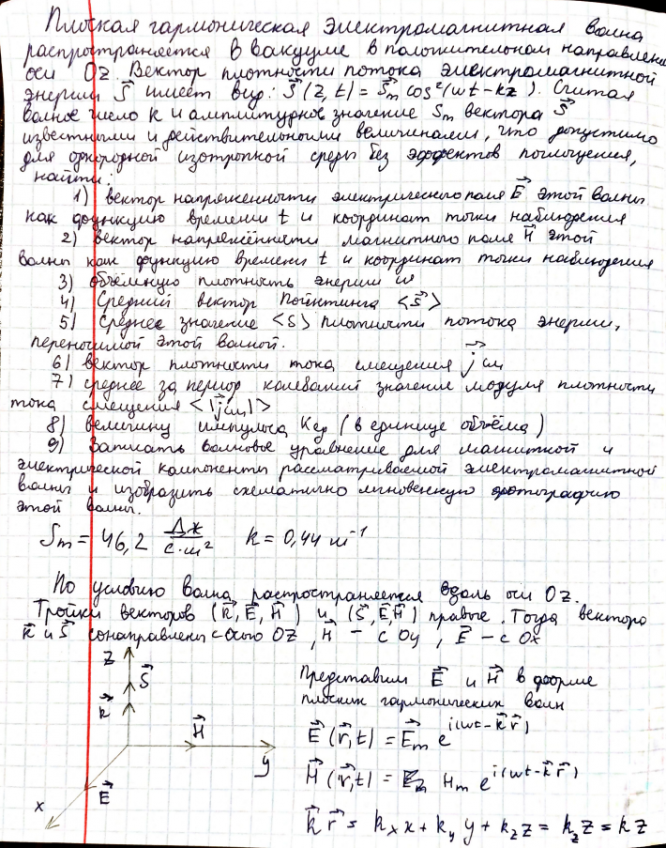 Плоская гармоническая электромагнитная волна
распространяется в вакууме в положительном направлении
оси Oz. Вектор плотности потока электромагнитной
энергии S⃗ имеет вид: S⃗(z,t) = S⃗m cos²(ωt-kz). Считая
волновое число k и амплитудное значение Sm вектора S⃗
известными и действительными величинами, что допустимо
для однородной изотропной среды без эффектов поглощения,
найти:
1) вектор напряженности электрического поля E⃗ этой волны
как функцию времени t и координат точки наблюдения
2) вектор напряжённости магнитного поля H⃗ этой
волны как функцию времени t и координат точки наблюдения
3) объёмную плотность энергии w
4) Средний вектор Пойнтинга <S⃗>
5) Среднее значение <S> плотности потока энергии,
переносимой этой волной.
6) вектор плотности тока смещения j⃗см
7) среднее за период колебаний значение модуля плотности
тока смещения <|j⃗см|>
8) величину импульса Kед (в единице объёма)
9) Записать волновое уравнение для магнитной и
электрической компоненты рассматриваемой электромагнитной
волны и изобразить схематично мгновенную фотографию
этой волны.
Sm = 46,2 Дж/(с·м²) k = 0,44 м⁻¹
По условию волна распространяется вдоль оси Oz.
Тройки векторов (k⃗, E⃗, H⃗) и (S⃗, E⃗, H⃗) правые. Тогда вектора
k⃗ и S⃗ сонаправлены с осью OZ, H⃗ - с Oy, E⃗ - с Ox
z
S⃗
k⃗
H⃗
y
E⃗
x
Представим E⃗ и H⃗ в форме
плоских гармонических волн
E⃗(r⃗,t) = E⃗m e^i(ωt-k⃗r⃗)
H⃗(r⃗,t) = Hm e^i(ωt-k⃗r⃗)
k⃗r⃗ = kx x + ky y + kz z = kz z = kz